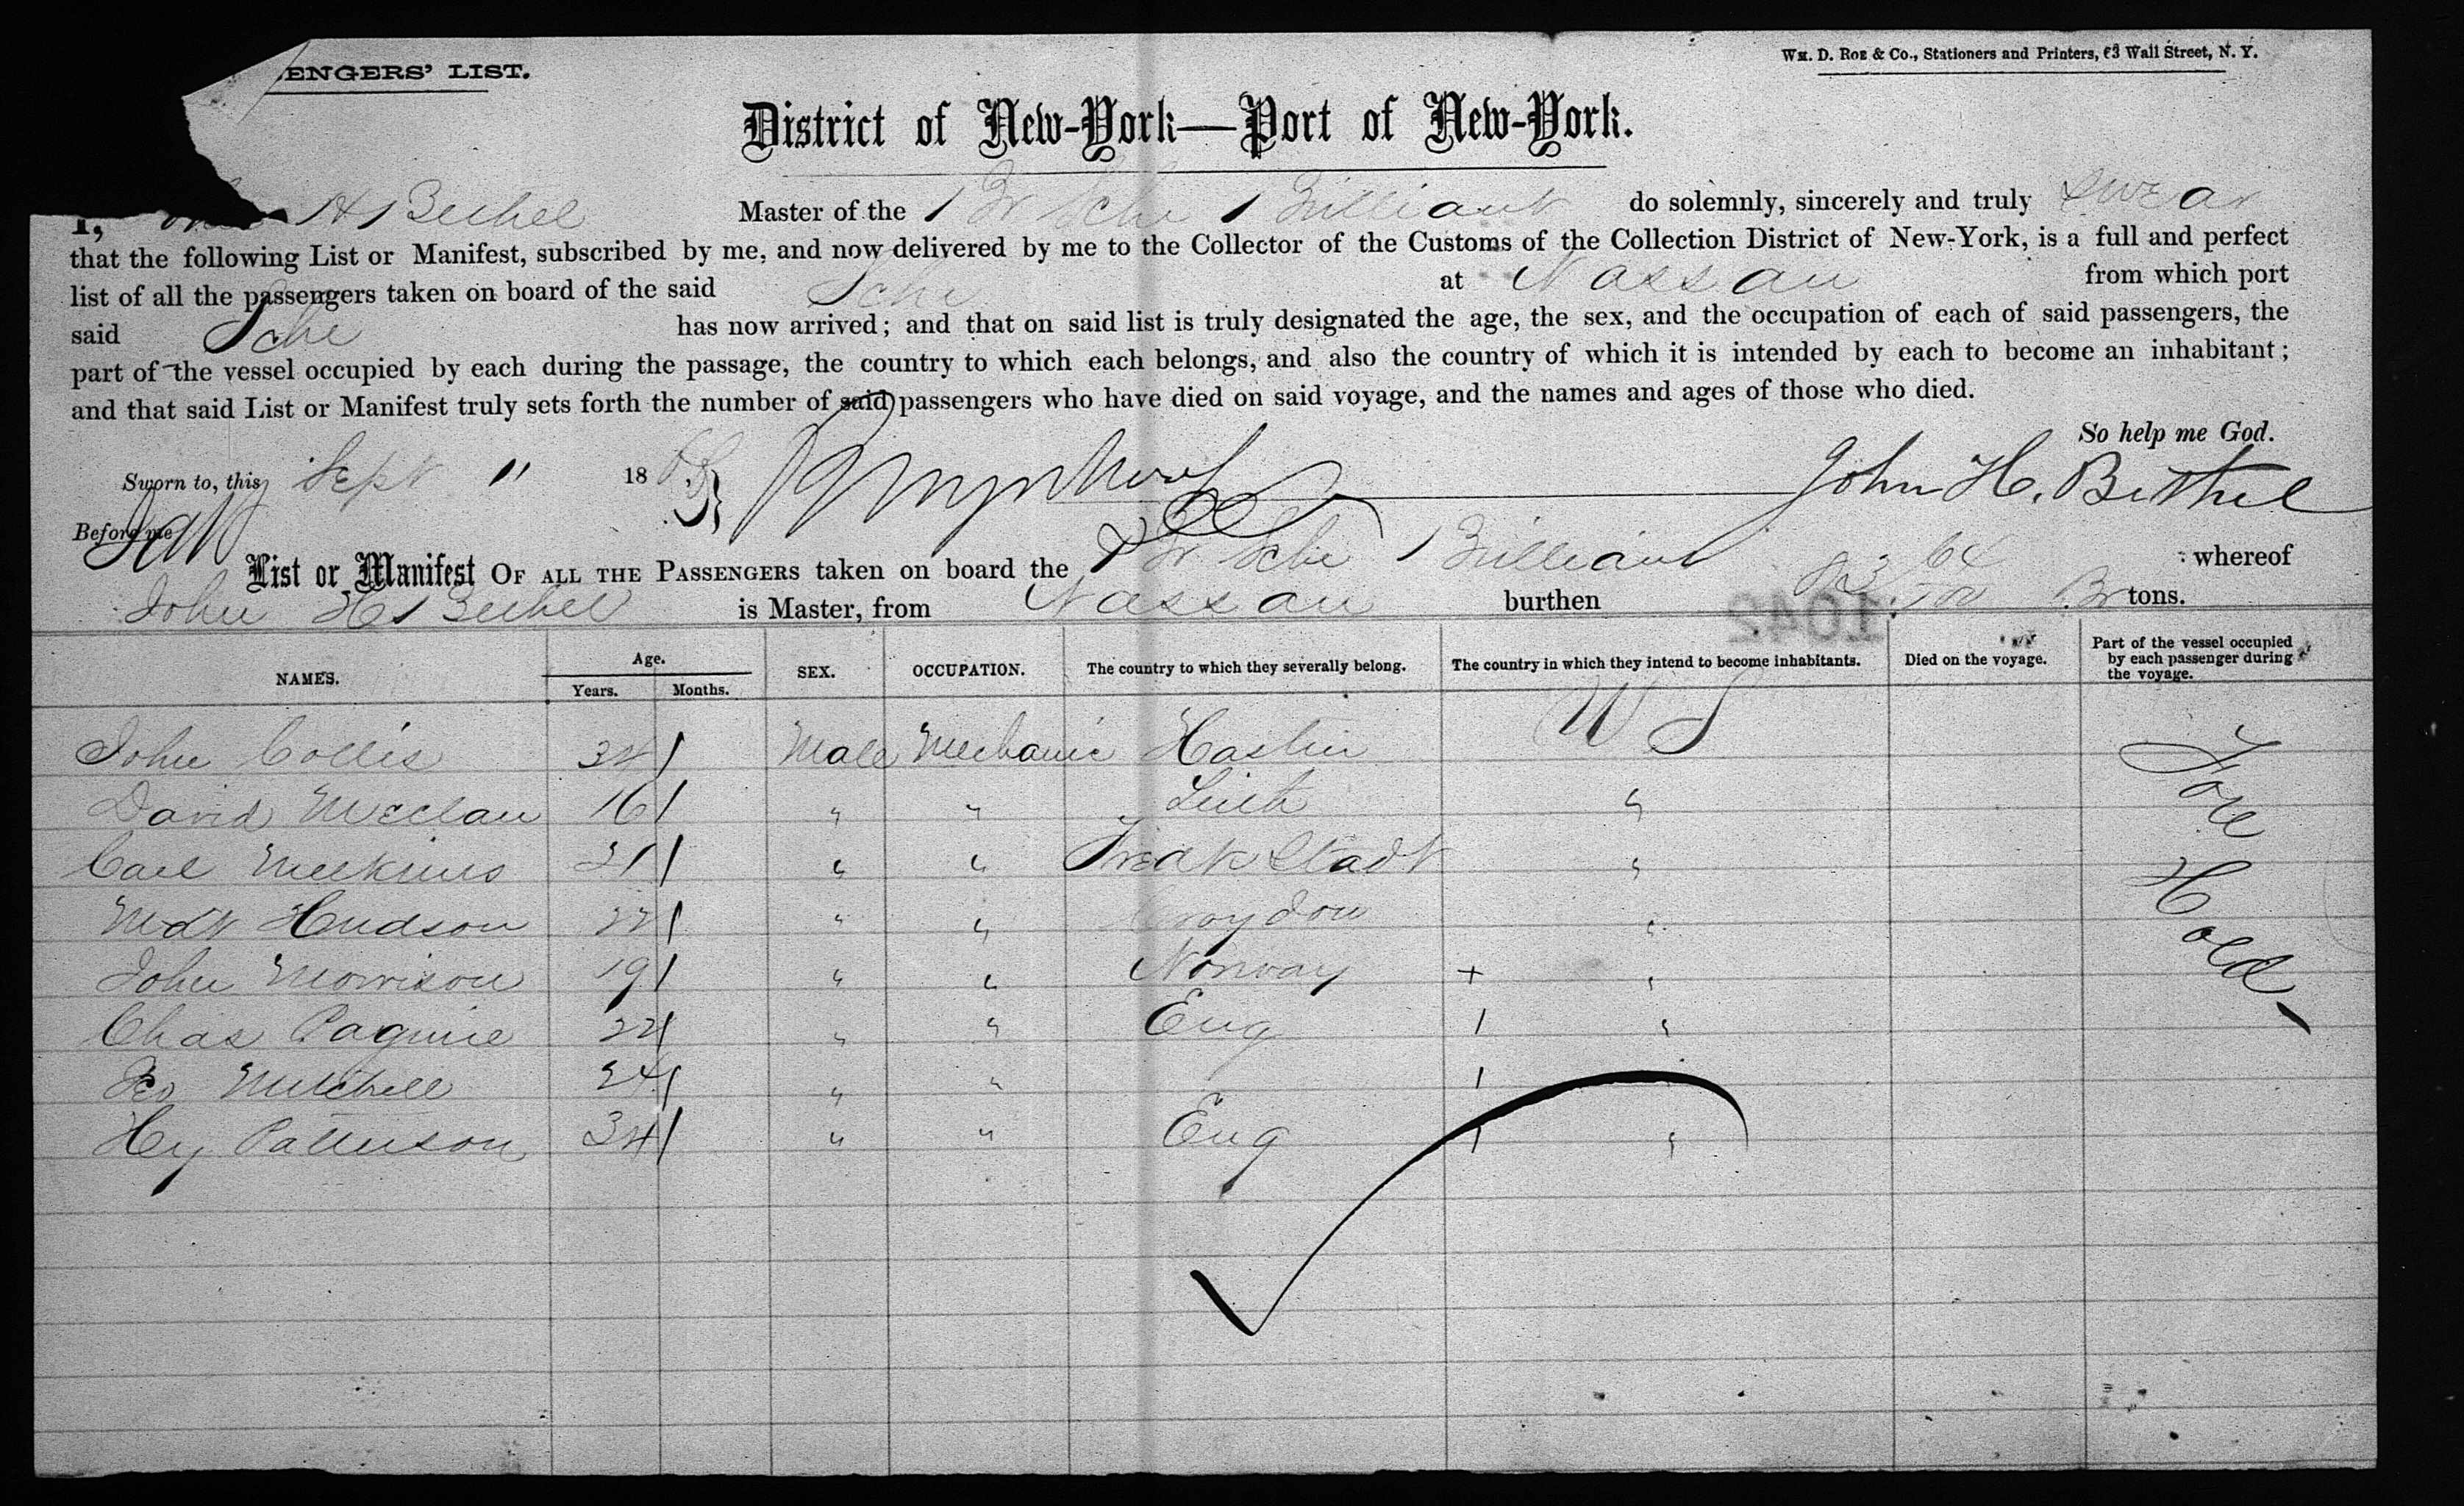 ENGERS' LIST.
Wm. D. Roe & Co., Stationers and Printers, 63 Wall Street, N. Y.
District of New-York—Port of New-York.
I, H Bethel Master of the Br Schr Brilliant do solemnly, sincerely and truly swear
that the following List or Manifest, subscribed by me, and now delivered by me to the Collector of the Customs of the Collection District of New-York, is a full and perfect
list of all the passengers taken on board of the said Schr at Nassau from which port
said Schr has now arrived; and that on said list is truly designated the age, the sex, and the occupation of each of said passengers, the
part of the vessel occupied by each during the passage, the country to which each belongs, and also the country of which it is intended by each to become an inhabitant;
and that said List or Manifest truly sets forth the number of said passengers who have died on said voyage, and the names and ages of those who died.
So help me God.
Sworn to, this Sept 11 18 John H. Bethel
Before me
List or Manifest OF ALL THE PASSENGERS taken on board the Br Schr Brilliant whereof
John H Bethel is Master, from Nassau burthen tons.
1042
NAMES. Age. Years. Months. SEX. OCCUPATION. The country to which they severally belong. The country in which they intend to become inhabitants. Died on the voyage. Part of the vessel occupied by each passenger during the voyage.
John Collis 34 Male Mechanic U S
David McClau 16 " " Leith "
Carl Meekins 21 " " Fredk Stadt "
Hudson 22 " " Croydon "
John Morrison 19 " " Norway + "
Chas 22 " " Eng 1 "
Mitchell 24 " " 1
Hy Patterson 34 " " Eng 1 "
Fore Hold